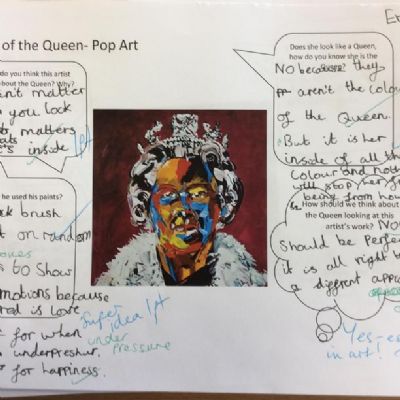 of the Queen- Pop Art
do you think this artist
about the Queen? Why?
n't matter
you look
matters
inside
he used his paints?
brush
on random
to show
motions because
red is love
for when
underpreshur.
for happiness.
Super
idea
under
pressure
Does she look like a Queen,
how do you know she is the
No because they
aren't the colou
of the Queen.
But it is her
inside of all th
colour and noth
will stop her
being from how
How should we think about
the Queen looking at this
artist's work?
No
should be perfe
it is all right
a different appro
Yes-es
in art!